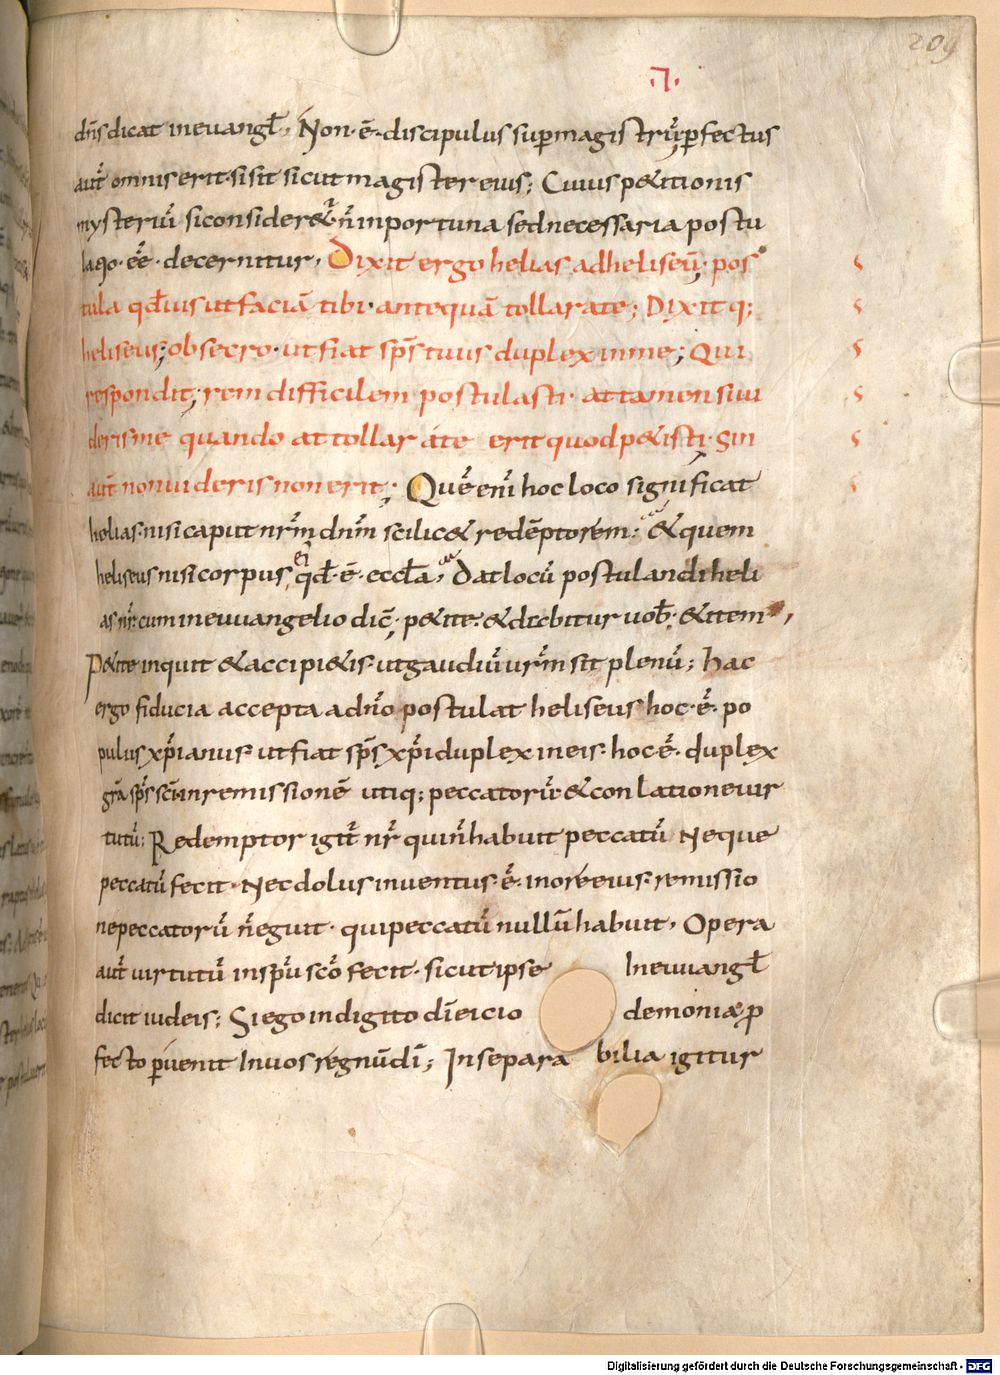 209
·⁊·
dn̄s dicat in euangl̄, Non ē discipulus sup̱ magistrū, p̱fectus
aut̄ omnis erit si sit sicut magister eius; Cuius p&itionis
mysteriū si consider&ur n̄ inportuna sed necessaria postu
latio eē decernitur, Dixit ergo helias ad heliseū; pos
tula qd̄ uis ut faciā tibi antequā tollar a te; Dixitq;
heliseus; obsecro ut fiat sp̄s tuus duplex in me; Qui
respondit; rem difficilem postulasti attamen si ui
deris me quando at tollar á te erit quod p&isti; Sin
aut̄ non uideris non erit; Quē enī hoc loco significat
helias nisi caput nr̄m dn̄m scilic& redēptorem; & quem
heliseus nisi corpus ei; qd̄ ē eccl̄a, Dat locū postulandi heli
as nr̄ cum in euuangelio dic̄; p&ite & dabitur uob̄; & item,
P&ite inquit & accipi&is ut gaudiū ur̄m sit plenū; hac
ergo fiducia accepta a dn̄o postulat heliseus hoc ē po
pulus xp̄ianus ut fiat sp̄s xp̄i duplex in eis hoc ē duplex
gr̄a sp̄s sc̄i in remissionē utiq; peccatorū & conlatione uir
tutū; Redemptor igit̄ nr̄ qui n̄ habuit peccatū Neque
peccatū fecit Nec dolus inuentus ē in ore eius remissio
ne peccatorū n̄ eguit qui peccatū nullū habuit, Opera
aut̄ uirtutū in sp̄u sc̄o fecit sicut ipse In euuangl̄
dicit iudeis; Si ego in digito dī eicio demonia p̱
fecto p̱uenit In uos regnū dī; Inseparabilia igitur
Digitalisierung gefördert durch die Deutsche Forschungsgemeinschaft - DFG